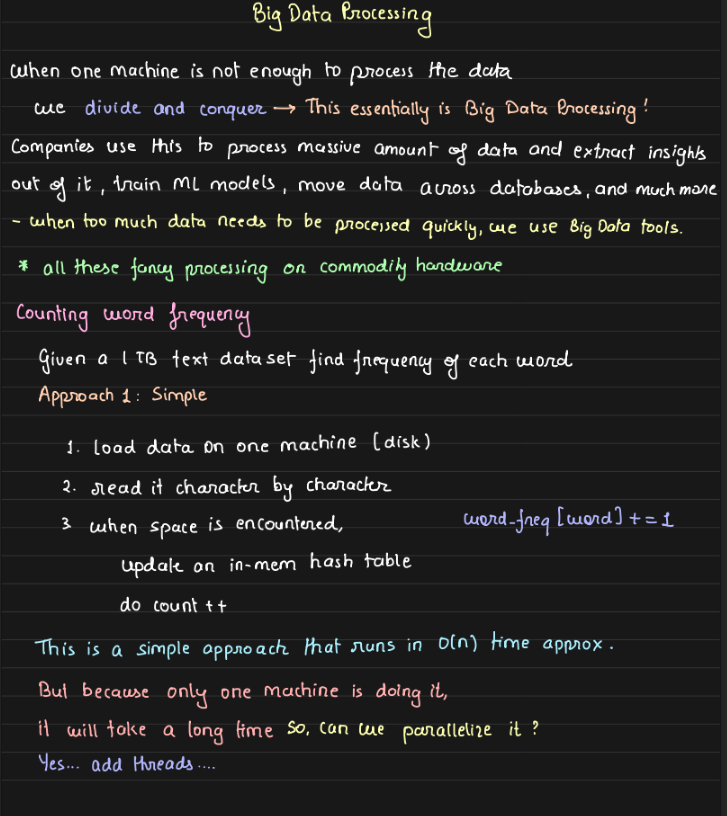 Big Data Processing
when one machine is not enough to process the data
we divide and conquer → This essentially is Big Data Processing!
Companies use this to process massive amount of data and extract insights
out of it, train ML models, move data across databases, and much more
- when too much data needs to be processed quickly, we use Big Data tools.
* all these fancy processing on commodity hardware
Counting word frequency
Given a 1 TB text dataset find frequency of each word
Approach 1: Simple
1. load data on one machine (disk)
2. read it character by character
3 when space is encountered, word_freq [word] += 1
update an in-mem hash table
do count ++
This is a simple approach that runs in O(n) time approx.
But because only one machine is doing it,
it will take a long time So, can we parallelize it?
Yes... add threads....